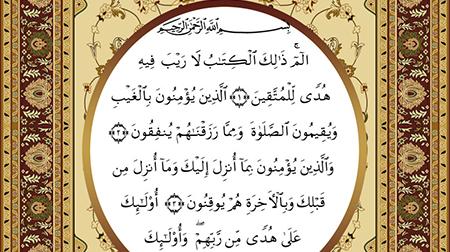 بِسْمِ ٱللَّهِ ٱلرَّحْمَٰنِ ٱلرَّحِيمِ
الٓمٓ ۚ ذَٰلِكَ ٱلْكِتَابُ لَا رَيْبَ فِيهِ
هُدًى لِّلْمُتَّقِينَ ﴿١﴾ ٱلَّذِينَ يُؤْمِنُونَ بِٱلْغَيْبِ
وَيُقِيمُونَ ٱلصَّلَوٰةَ وَمِمَّا رَزَقْنَاهُمْ يُنفِقُونَ ﴿٢﴾
وَٱلَّذِينَ يُؤْمِنُونَ بِمَآ أُنزِلَ إِلَيْكَ وَمَآ أُنزِلَ مِن
قَبْلِكَ وَبِٱلْآخِرَةِ هُمْ يُوقِنُونَ ﴿٣﴾ أُوْلَٰٓئِكَ
عَلَىٰ هُدًى مِّن رَّبِّهِمْ ۖ وَأُوْلَٰٓئِكَ